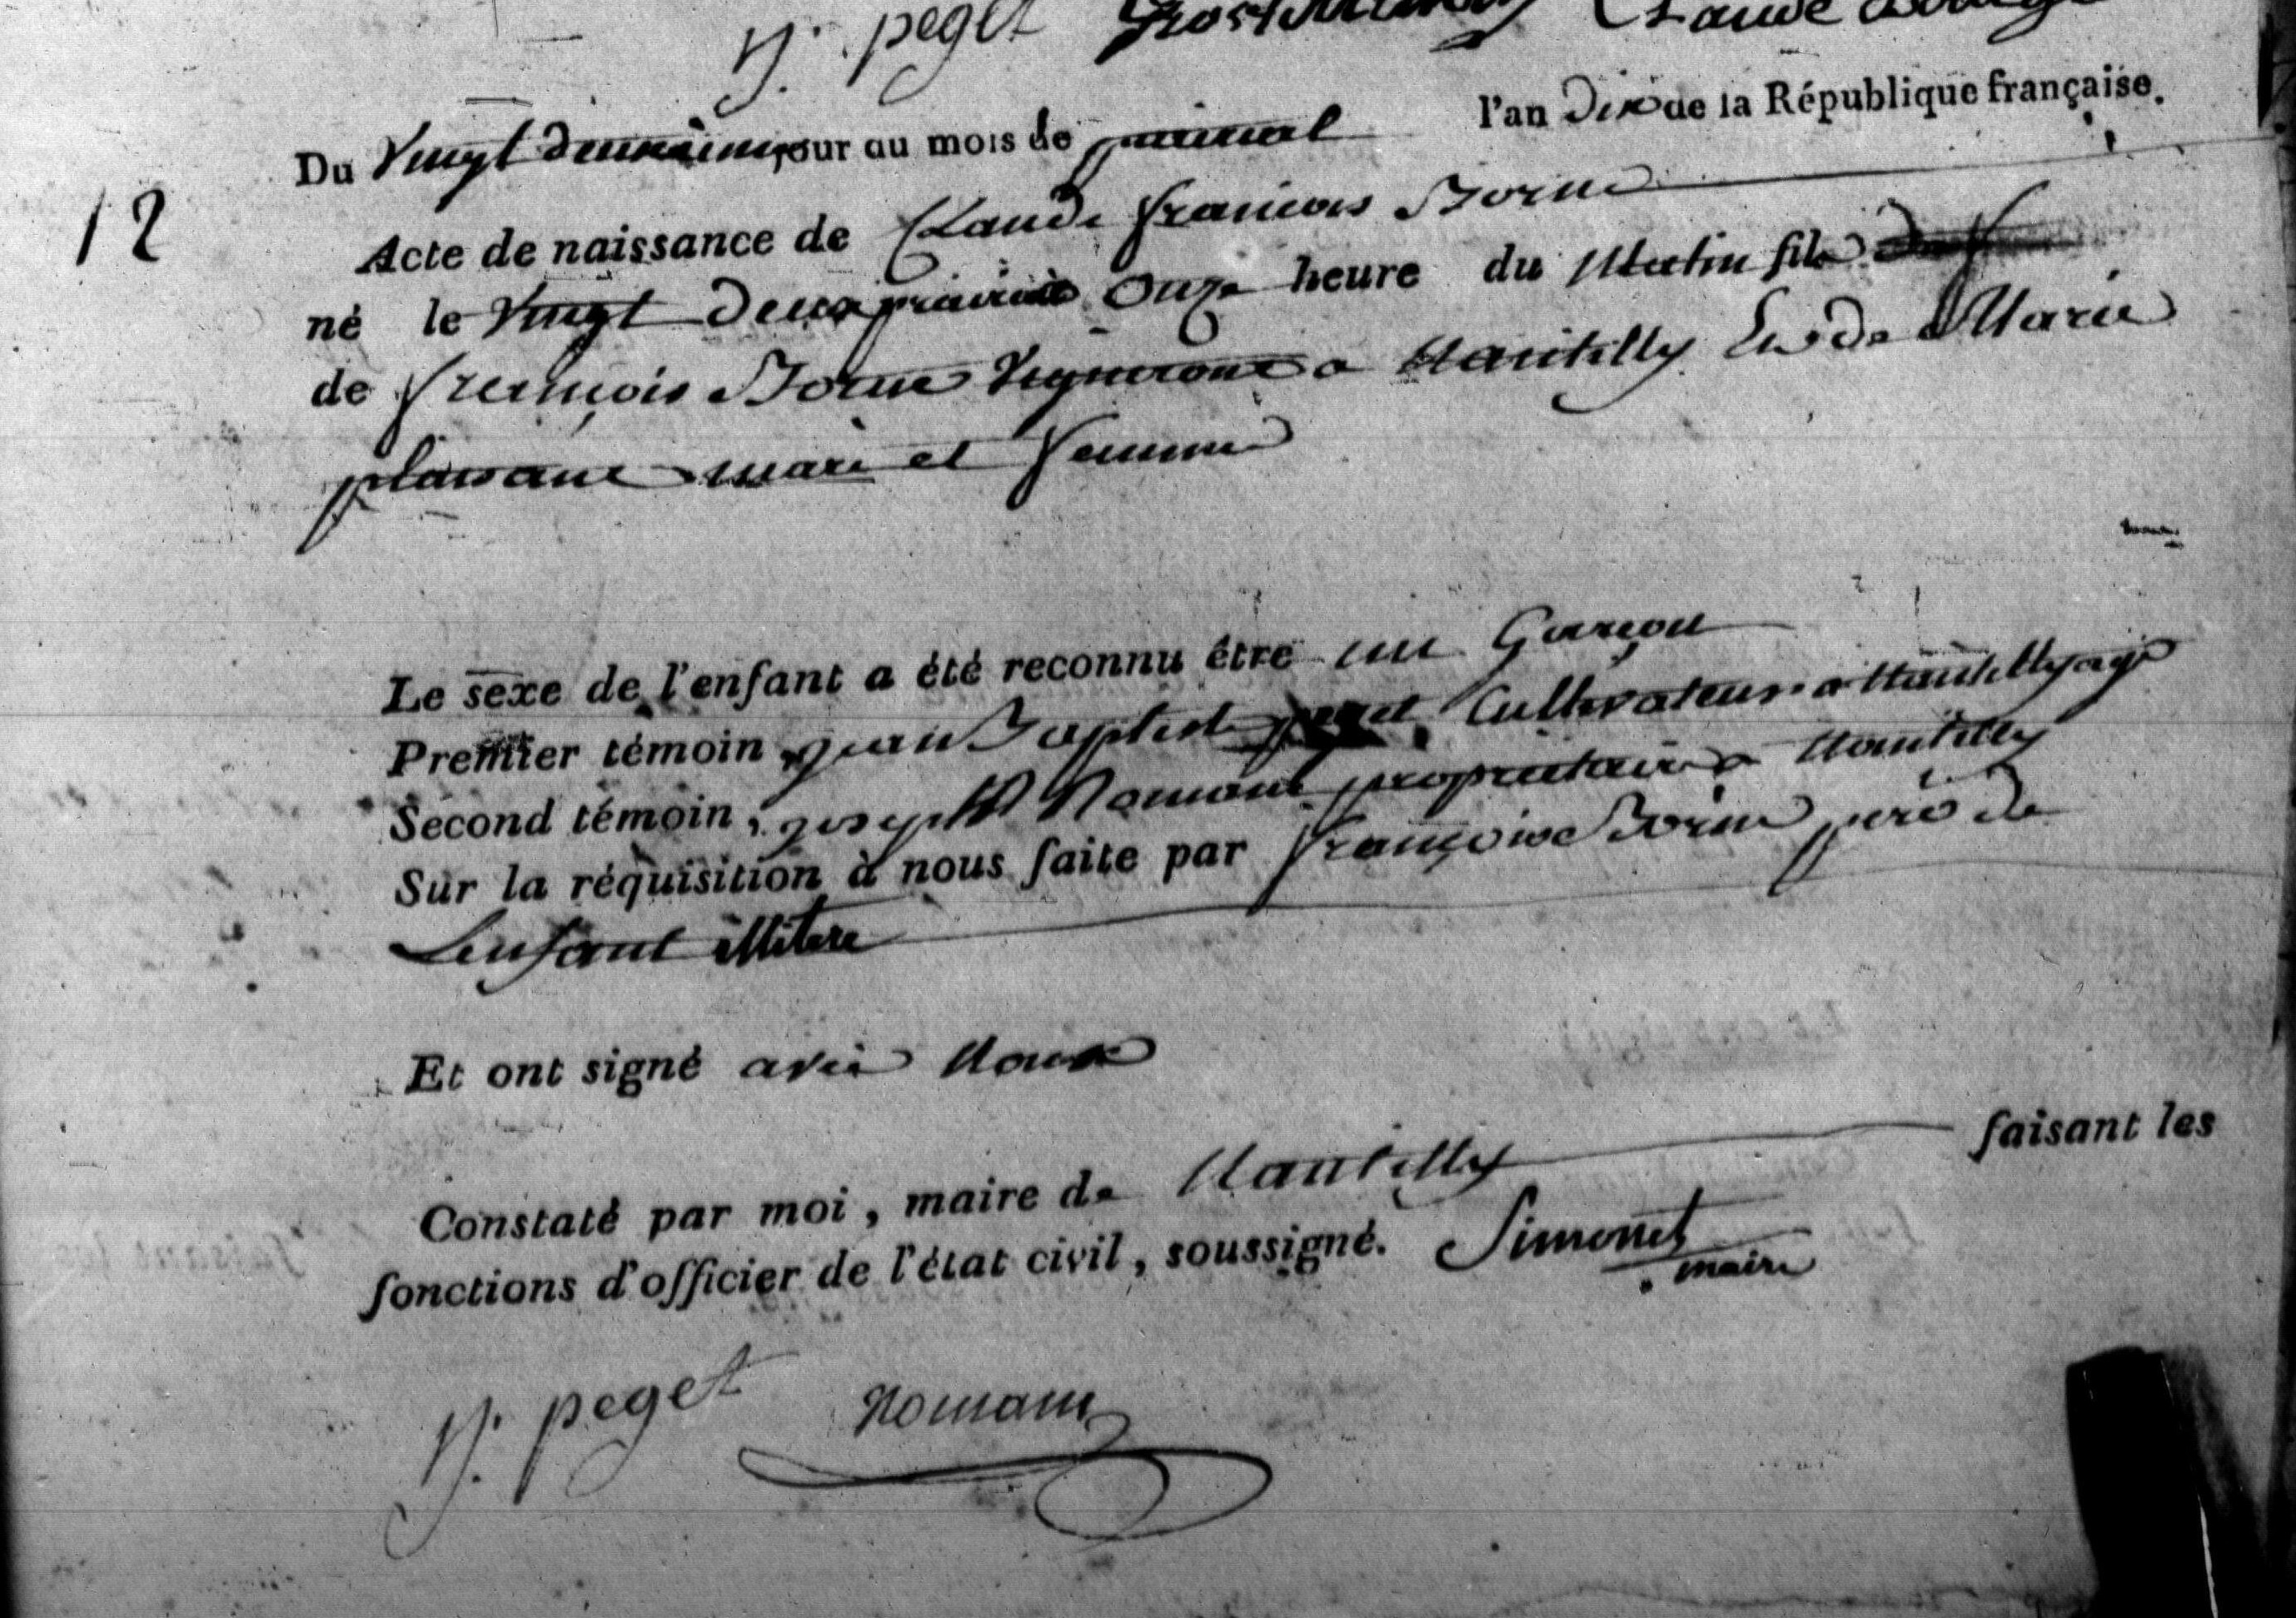 J. peget Claude
Du Vingt deuxieme jour du mois de prairial l'an Dix de la République française.
12
Acte de naissance de Claude francois Borne
né le Vingt Deux prairial Onze heure du Matin fils
de françois Borne Vigneront a Nantilly Et de Marie
plaisant mari et femme
Le sexe de l'enfant a été reconnu être un Garçon
Premier témoin, jean Baptiste peget Cultivateur a Nantilly age
Second témoin, joseph Nomant propriétaire a Nantilly
Sur la réquisition à nous faite par françois Borne pere de
Lenfant illitere
Et ont signé avec Nous
Constaté par moi, maire de Nantilly faisant les
fonctions d'officier de l'état civil, soussigné. Simonet
maire
J. peget Nomant